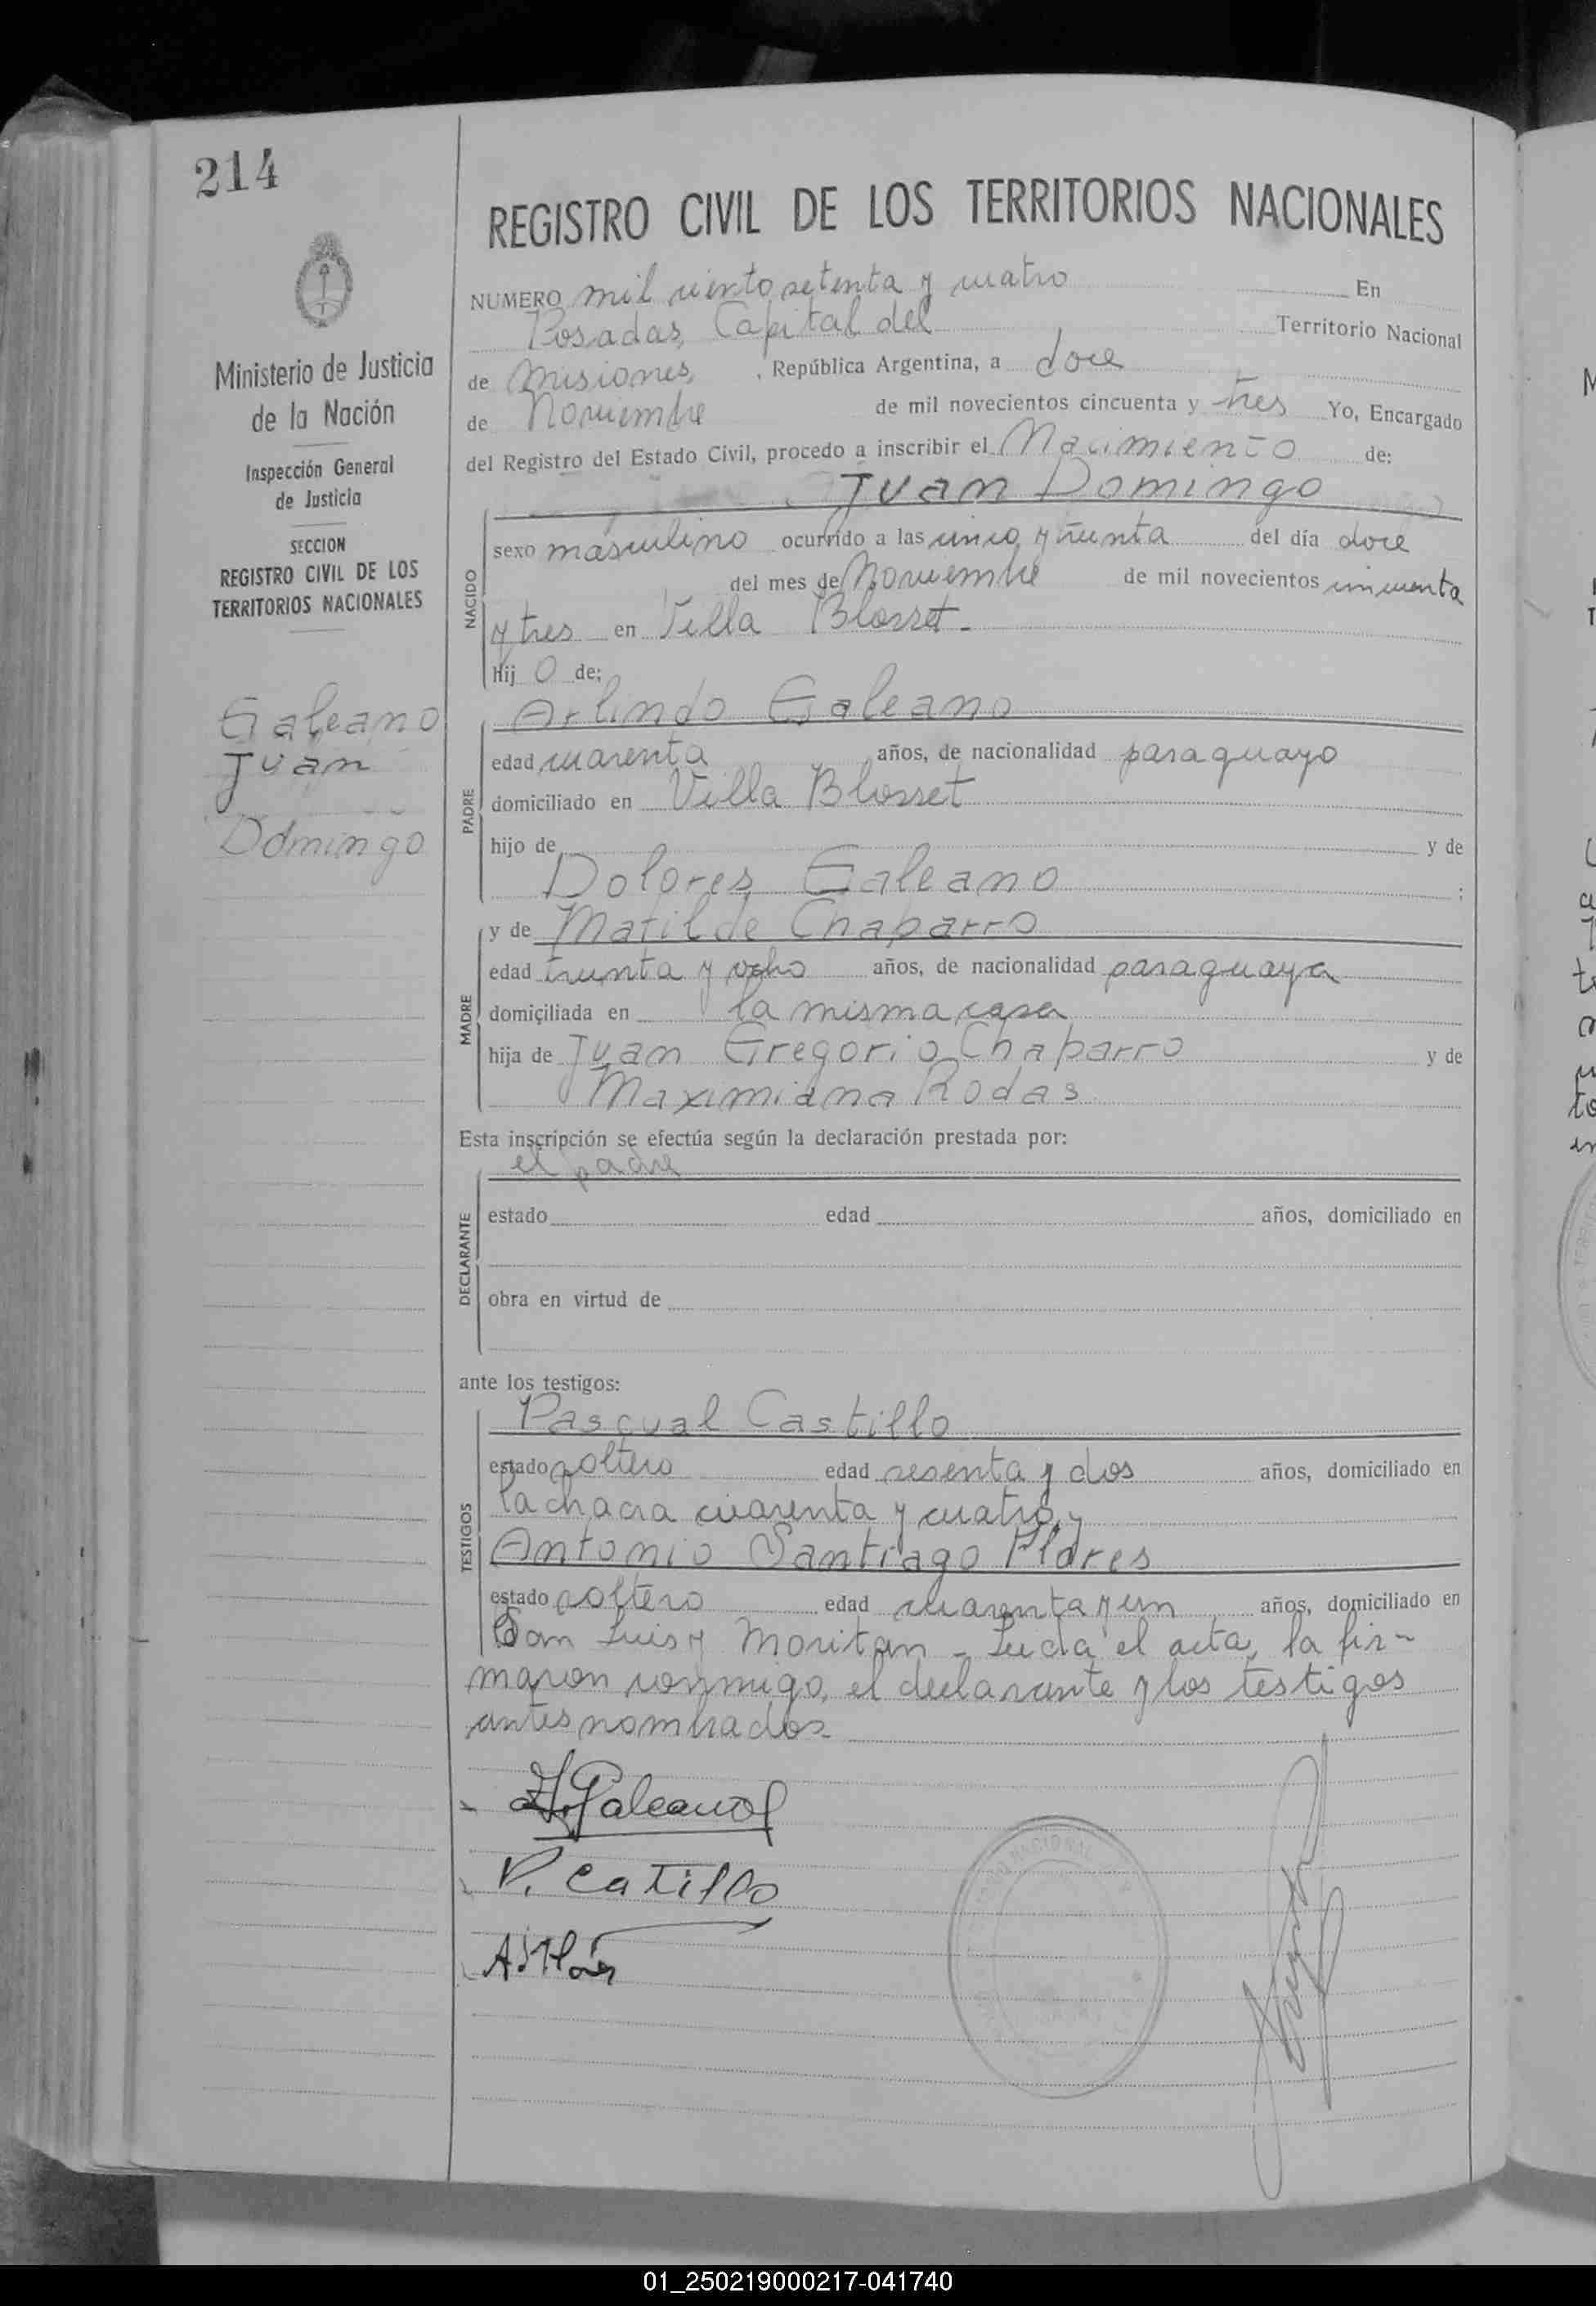 214
REGISTRO CIVIL DE LOS TERRITORIOS NACIONALES
Ministerio de Justicia
de la Nación
Inspección General
de Justicia
SECCION
REGISTRO CIVIL DE LOS
TERRITORIOS NACIONALES
Galeano
Juan
Domingo
NUMERO mil ciento setenta y cuatro En
Posadas, Capital del Territorio Nacional
de Misiones, República Argentina, a doce
de Noviembre de mil novecientos cincuenta y tres Yo, Encargado
del Registro del Estado Civil, procedo a inscribir el Nacimiento de:
Juan Domingo
NACIDO
sexo masculino ocurrido a las cinco y treinta del día doce
del mes de Noviembre de mil novecientos cincuenta
y tres en Villa Blosset.
hij o de:
PADRE
Arlindo Galeano
edad cuarenta años, de nacionalidad paraguayo
domiciliado en Villa Blosset
hijo de y de
Dolores Galeano ;
MADRE
y de Matilde Chaparro
edad treinta y ocho años, de nacionalidad paraguaya
domiciliada en la misma casa
hija de Juan Gregorio Chaparro y de
Maximiana Rodas
Esta inscripción se efectúa según la declaración prestada por:
DECLARANTE
el padre
estado edad años, domiciliado en
obra en virtud de
ante los testigos:
TESTIGOS
Pascual Castillo
estado soltero edad sesenta y dos años, domiciliado en
la chacra cuarenta y cuatro, y
Antonio Santiago Flores
estado soltero edad cuarenta y un años, domiciliado en
San Luis y Moritan - Leida el acta, la fir-
maron conmigo, el declarante y los testigos
antes nombrados
Galeano
P. Catillo
01_250219000217-041740